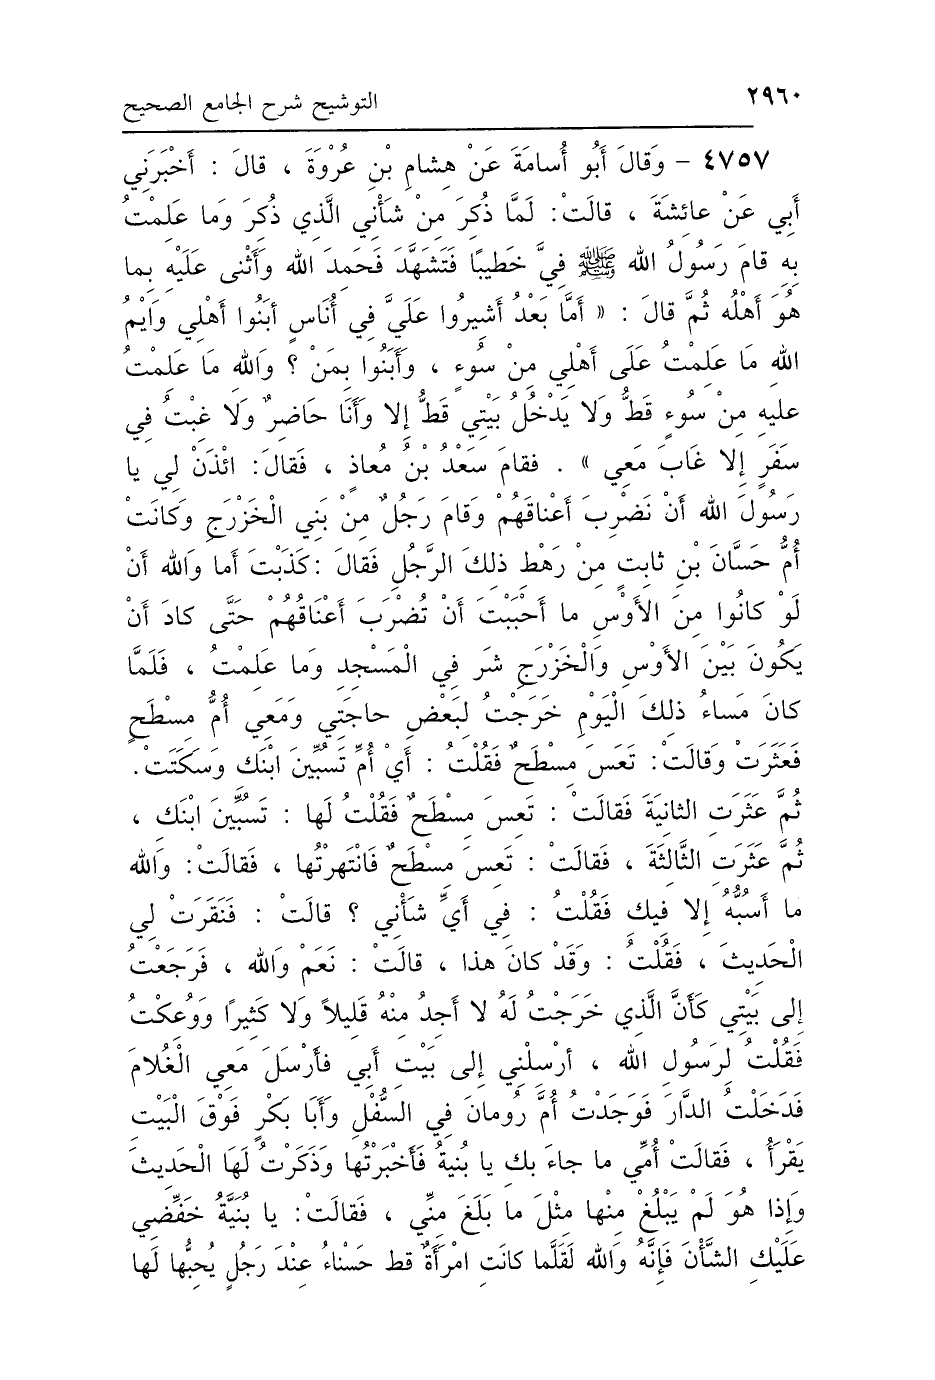 ٢٩٦٠ التوشيح شرح الجامع الصحيح
٤٧٥٧ - وَقالَ أَبُو أُسامَةَ عَنْ هِشامِ بْنِ عُرْوَةَ ، قالَ : أَخْبَرَنِي
أَبِي عَنْ عائِشَةَ ، قالَتْ: لَمَّا ذُكِرَ مِنْ شَأْنِي الَّذِي ذُكِرَ وَما عَلِمْتُ
بِهِ قامَ رَسُولُ الله ﷺ فِيَّ خَطِيبًا فَتَشَهَّدَ فَحَمِدَ الله وَأَثْنى عَلَيْهِ بِما
هُوَ أَهْلُه ثُمَّ قالَ : « أَمَّا بَعْدُ أَشِيرُوا عَلَيَّ فِي أُنَاسٍ أَبَنُوا أَهْلِي وَايْمُ
الله مَا عَلِمْتُ عَلَى أَهْلِي مِنْ سُوءٍ ، وَأَبَنُوا بِمَنْ ؟ وَالله مَا عَلِمْتُ
عليه مِنْ سُوءٍ قَطُّ وَلا يَدْخُلُ بَيْتِي قَطُّ إِلا وَأَنَا حَاضِرٌ وَلَا غِبْتُ فِي
سَفَرٍ إِلا غَابَ مَعِي » . فقامَ سَعْدُ بْنُ مُعاذٍ ، فَقالَ: ائْذَنْ لِي يا
رَسُولَ الله أَنْ نَضْرِبَ أَعْناقَهُمْ وَقامَ رَجُلٌ مِنْ بَنِي الْخَزْرَجِ وَكانَتْ
أُمُّ حَسَّانَ بْنِ ثابِتٍ مِنْ رَهْطِ ذلِكَ الرَّجُلِ فَقالَ :كَذَبْتَ أما وَالله أَنْ
لَوْ كانُوا مِنَ الأَوْسِ ما أَحْبَبْتَ أَنْ تُضْرَبَ أَعْنَاقُهُمْ حَتَّى كادَ أَنْ
يَكُونَ بَيْنَ الأَوْسِ وَالْخَزْرَجِ شَر فِي الْمَسْجِدِ وَما عَلِمْتُ ، فَلَمَّا
كانَ مَساءُ ذلِكَ الْيَوْمِ خَرَجْتُ لِبَعْضِ حاجَتِي وَمَعِي أُمُّ مِسْطَحٍ
فَعَثَرَتْ وَقالَتْ: تَعَسَ مِسْطَحٌ فَقُلْتُ : أَيْ أُمِّ تَسُبِّينَ ابْنَكِ وَسَكَتَتْ.
ثُمَّ عَثَرَتِ الثانِيَةَ فَقالَتْ : تَعِسَ مِسْطَحٌ فَقُلْتُ لَها : تَسُبِّينَ ابْنَك ،
ثُمَّ عَثَرَتِ الثَّالِثَةَ ، فَقالَتْ : تَعِسَ مِسْطَحٌ فَانْتَهرْتُها ، فَقالَتْ: وَالله
ما أَسُبُّهُ إِلا فِيكِ فَقُلْتُ : فِي أَيِّ شَأْنِي ؟ قالَتْ : فَنَقَرَتْ لِي
الْحَدِيثَ ، فَقُلْتُ : وَقَدْ كانَ هذا ، قالَتْ : نَعَمْ وَالله ، فَرَجَعْتُ
إِلى بَيْتِي كَأَنَّ الَّذِي خَرَجْتُ لَهُ لا أَجِدُ مِنْهُ قَلِيلاً وَلا كَثِيرًا وَوُعِكْتُ
فَقُلْتُ لِرَسُولِ الله ، أرْسِلْنِي إِلى بَيْتِ أَبِي فأَرْسَلَ مَعِي الْغُلامَ
فَدَخَلْتُ الدَّارَ فَوَجَدْتُ أُمَّ رُومانَ فِي السُّفْلِ وَأَبَا بَكْرٍ فَوْقَ الْبَيْتِ
يَقْرَأُ ، فَقالَتْ أُمِّي ما جاءَ بِك يا بُنيةُ فَأَخْبَرْتُها وَذَكَرْتُ لَهَا الْحَدِيثَ
وَإِذا هُوَ لَمْ يَبْلُغْ مِنْها مِثْلَ ما بَلَغَ مِنِّي ، فَقالَتْ: يا بُنَيَّةُ خَفِّضِي
عَلَيْكِ الشَّأْنَ فَإِنَّهُ وَالله لَقَلَّما كانَتِ امْرَأَةٌ قط حَسْناءُ عِنْدَ رَجُلٍ يُحِبُّها لَها